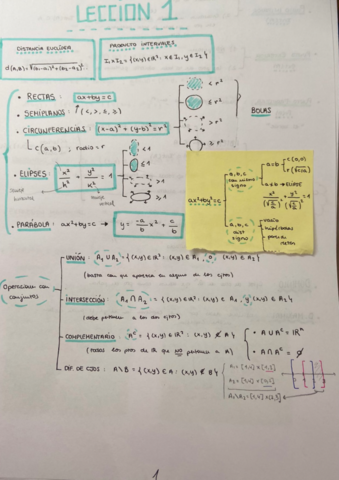 LECCIÓN 1
DISTANCIA EUCLÍDEA
d(A,B)=√(b₁-a₁)²+(b₂-a₂)²
PRODUCTO INTERVALOS
I₁×I₂ = {(x,y)∈ℝ²: x∈I₁, y∈I₂}
• RECTAS: ax+by=c
• SEMIPLANOS: (<, >, ≤, ≥)
• CIRCUNFERENCIAS: (x-a)²+(y-b)²=r²
C(a,b); radio=r
< r²
≤ r²
> r²
≥ r²
BOLAS
• ELIPSES: x²/h² + y²/k² = 1
<1
≤1
>1
≥1
• PARÁBOLA: ax²+by=c → y = -a/b x² + c/b
ax²+by²=c
a,b,c
mismo
signo
a=b
C(0,0)
a≠b → ELIPSE
a,b,c
dist
signo
vacío
hipérbolas
Operaciones con
conjuntos
UNIÓN: A₁∪A₂ = {(x,y)∈ℝ²: (x,y)∈A₁ o (x,y)∈A₂}
(basta con que aparezca en alguno de los cjtos)
INTERSECCIÓN: A₁∩A₂ = {(x,y)∈ℝ²: (x,y)∈A₁ y (x,y)∈A₂}
(debe pertenecer a los dos cjtos)
COMPLEMENTARIO: Aᶜ = {(x,y)∈ℝ²: (x,y)∉A}
(todos los ptos de ℝ que NO pertenece a A)
• A∪Aᶜ=ℝⁿ
• A∩Aᶜ=∅
DIF. DE CJTOS: A\B = {(x,y)∈A: (x,y)∉B}
1